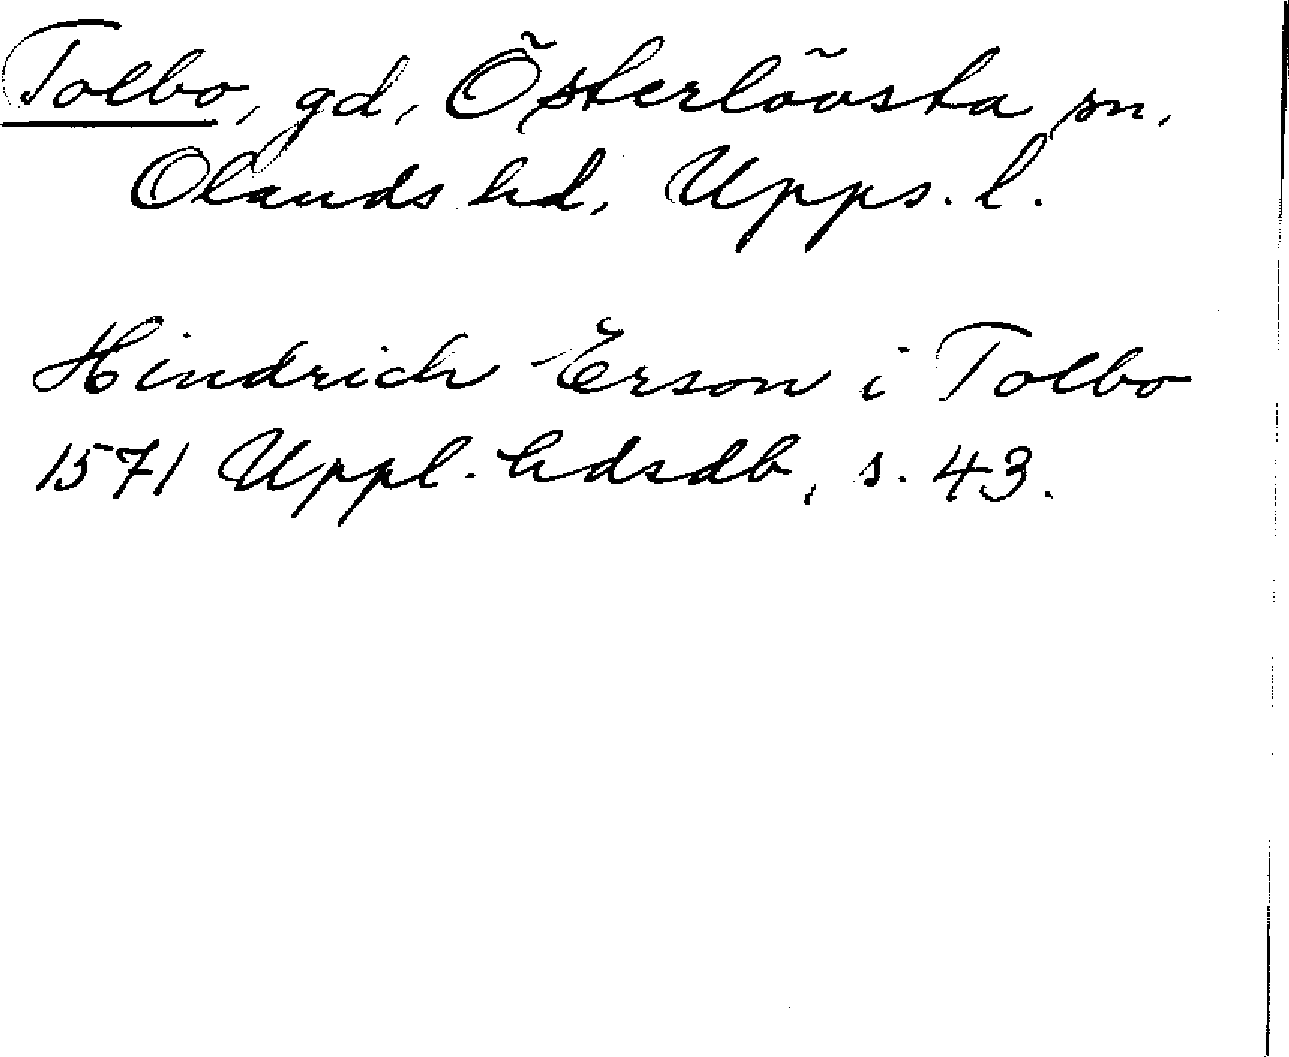 Tolbo, gd, Österlövsta sn,
Olands hd, Upps. l.
Hindrich Erson i Tolbo
1571 Uppl. hdsdb, s. 43.